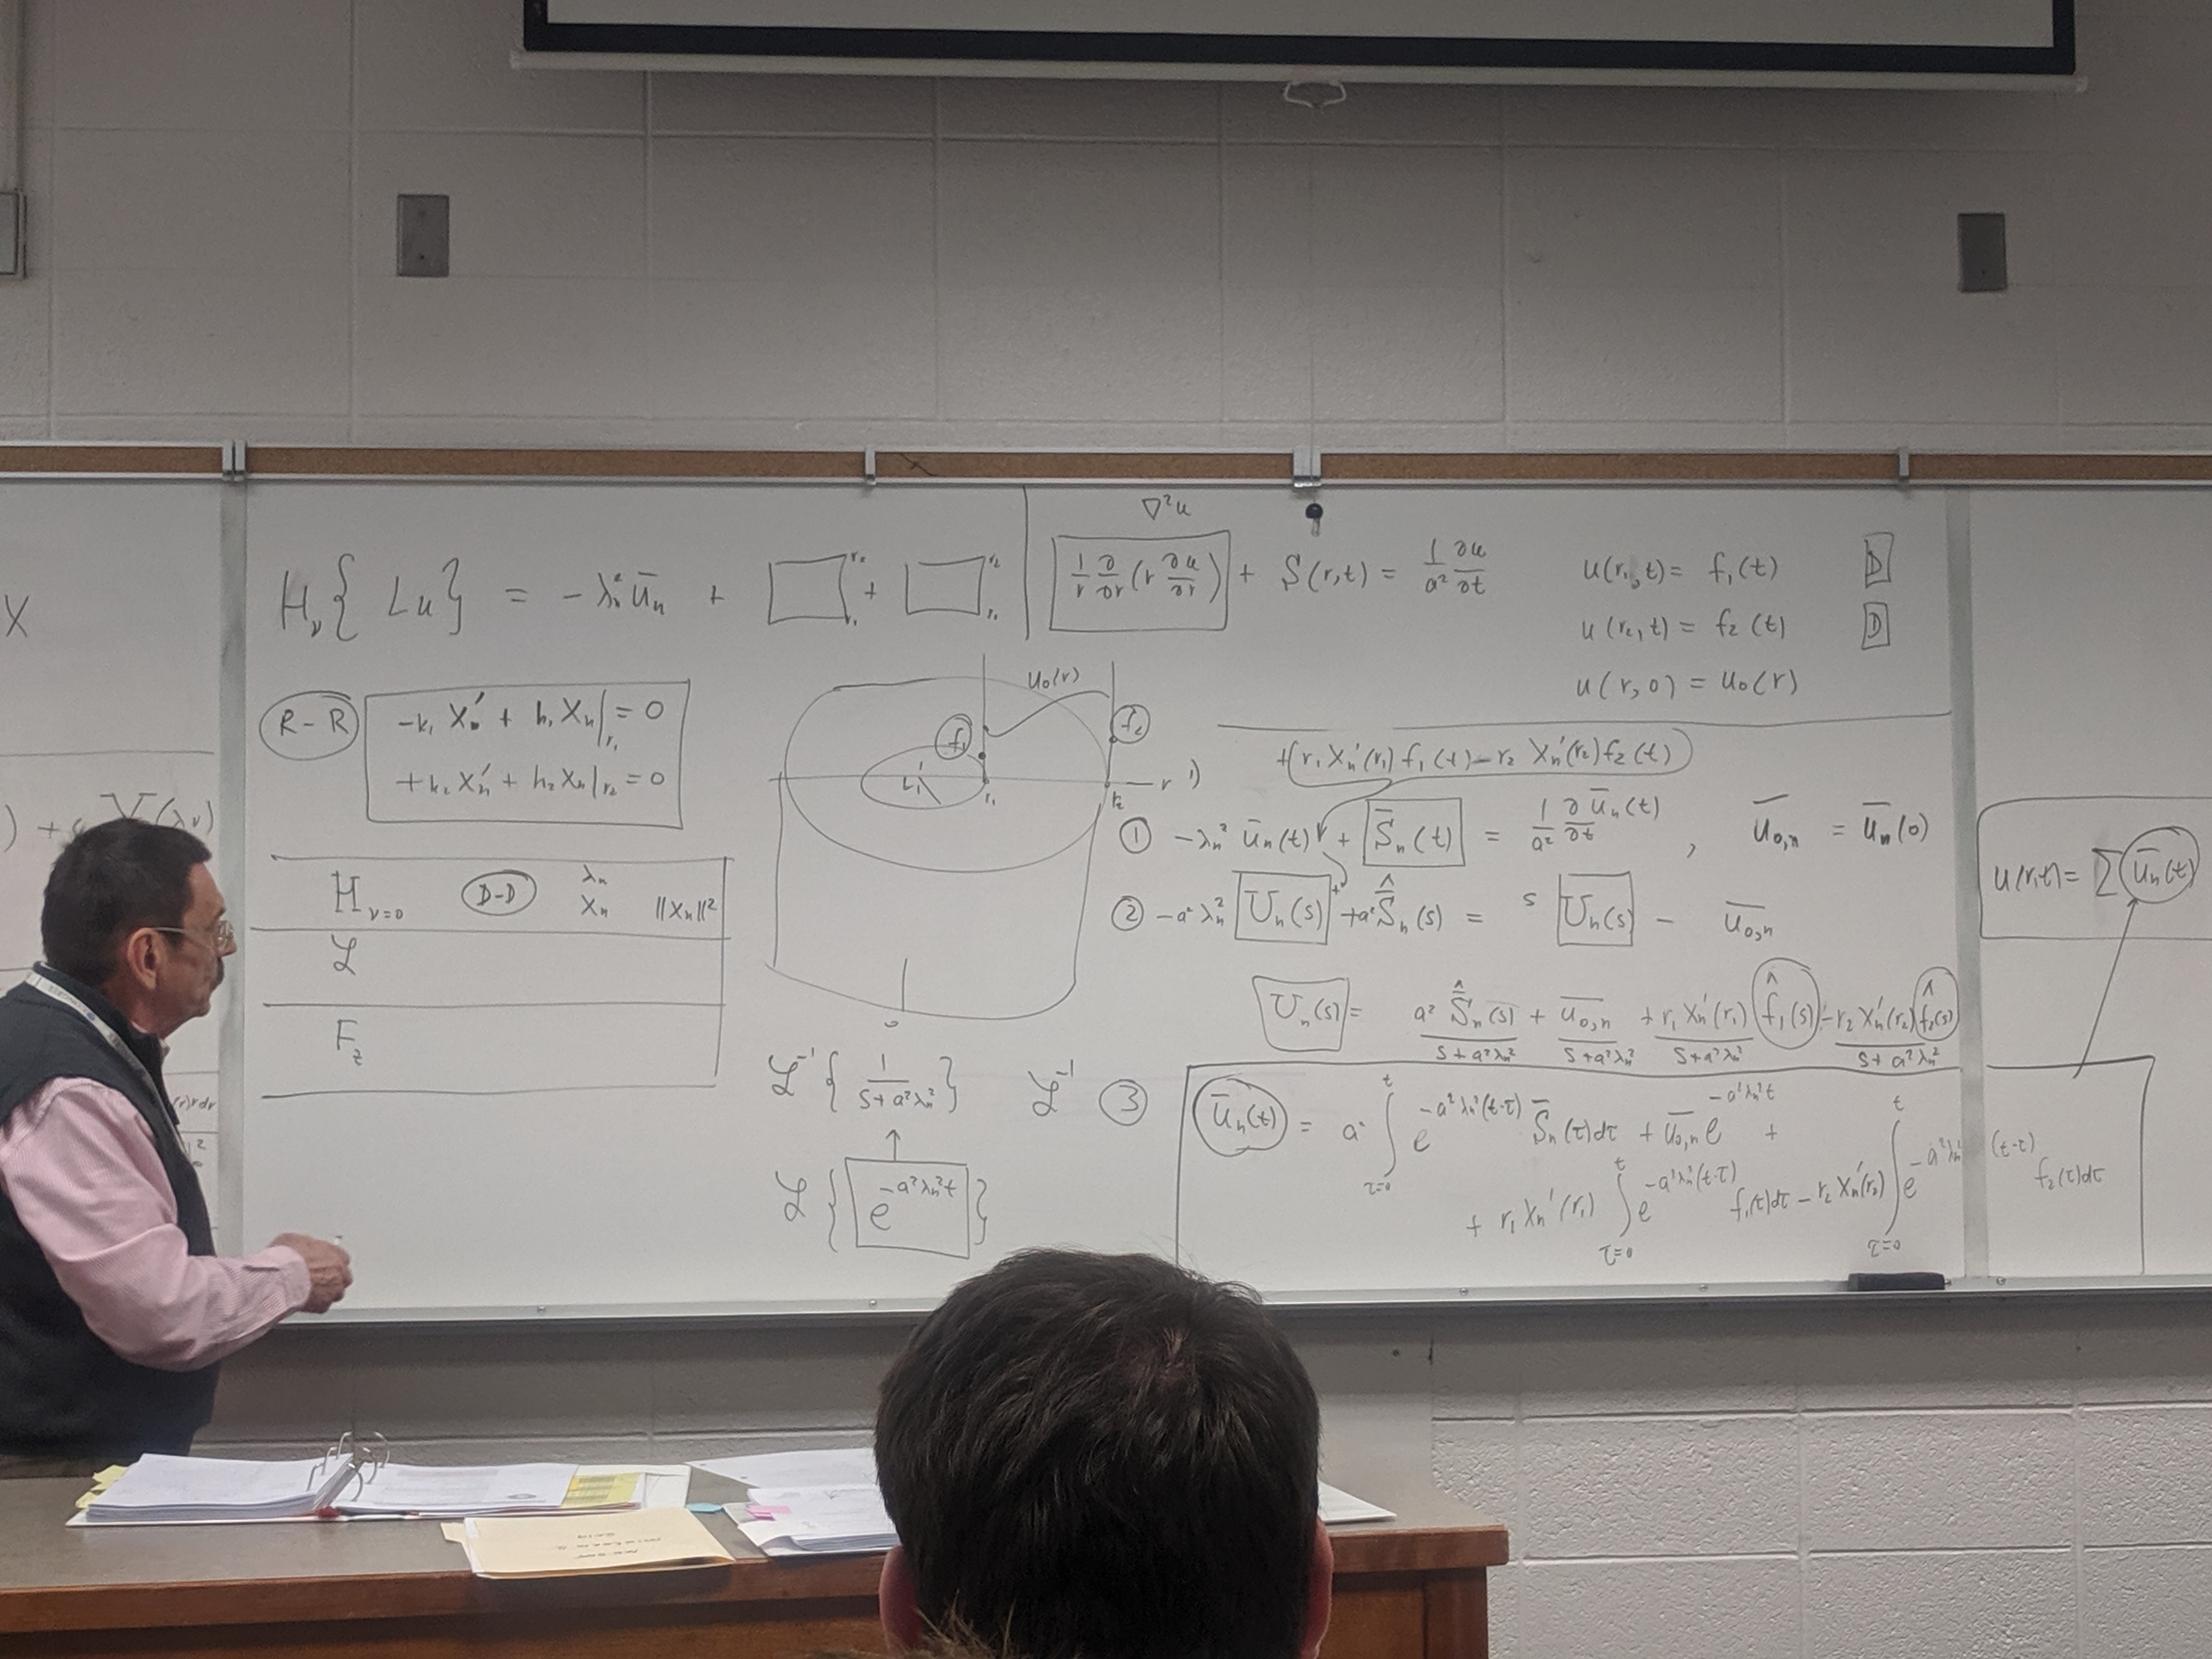 X
H_ν{ Lu } = - λ_n² ū_n + □|_{r₁}^{r₂} + □|_{r₁}^{r₂}
R - R
-k₁ X_n' + h₁ X_n |_{r₁} = 0
+k₂ X_n' + h₂ X_n |_{r₂} = 0
H_{ν=0} D-D λ_n X_n ‖X_n‖²
ℒ
F_z
u₀(r)
f₁ f₂
L
r₁ r₂ r
0
ℒ⁻¹ { 1/(s + a²λ_n²) } ℒ⁻¹
ℒ { e^{-a²λ_n²t} }
∇²u
1/r ∂/∂r (r ∂u/∂r) + S(r,t) = 1/a² ∂u/∂t
u(r₁,t) = f₁(t) D
u(r₂,t) = f₂(t) D
u(r,0) = u₀(r)
+(r₁ X_n'(r₁) f₁(t) - r₂ X_n'(r₂) f₂(t))
① -λ_n² ū_n(t) + S̄_n(t) = 1/a² ∂ū_n(t)/∂t , ū_{0,n} = ū_n(0)
② -a² λ_n² Ū_n(s) + a² Ŝ̄_n(s) = s Ū_n(s) - ū_{0,n}
Ū_n(s) = a² Ŝ̄_n(s)/(s+a²λ_n²) + ū_{0,n}/(s+a²λ_n²) + r₁ X_n'(r₁) f̂₁(s)/(s+a²λ_n²) - r₂ X_n'(r₂) f̂₂(s)/(s+a²λ_n²)
③ ū_n(t) = a² ∫_{τ=0}^{t} e^{-a²λ_n²(t-τ)} S̄_n(τ)dτ + ū_{0,n} e^{-a²λ_n²t} +
+ r₁ X_n'(r₁) ∫_{τ=0}^{t} e^{-a²λ_n²(t-τ)} f₁(τ)dτ - r₂ X_n'(r₂) ∫_{τ=0}^{t} e^{-a²λ_n²(t-τ)} f₂(τ)dτ
u(r,t) = Σ ū_n(t)